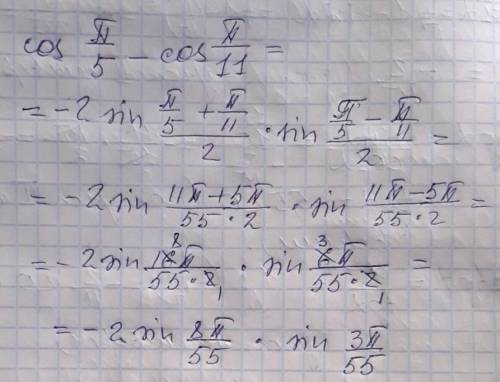 cos π/5 − cos π/11 =
= −2 sin (π/5 + π/11)/2 · sin (π/5 − π/11)/2 =
= −2 sin (11π+5π)/(55·2) · sin (11π−5π)/(55·2) =
= −2 sin 16⁸π/(55·2₁) · sin 6³π/(55·2₁) =
= −2 sin 8π/55 · sin 3π/55